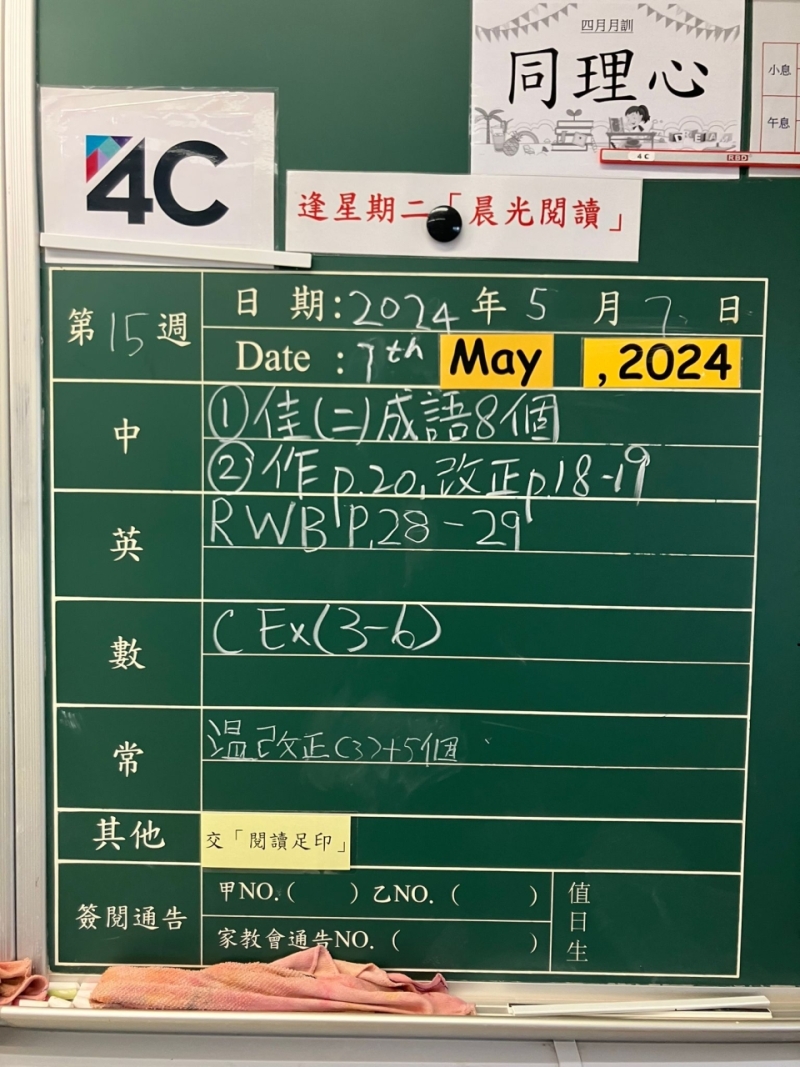 四月月訓
同理心
小息
午息
4C
RBD
4C
逢星期二「晨光閱讀」
第15週
日 期:2024年5月7日
Date : 7th May ,2024
中
①佳(二)成語8個
②作p.20,改正p.18-19
英
RWB P.28-29
數
C Ex(3-6)
常
溫已改正(3)+5個
其他
交「閱讀足印」
簽閱通告
甲NO.( )乙NO. ( )
家教會通告NO. ( )
值日生